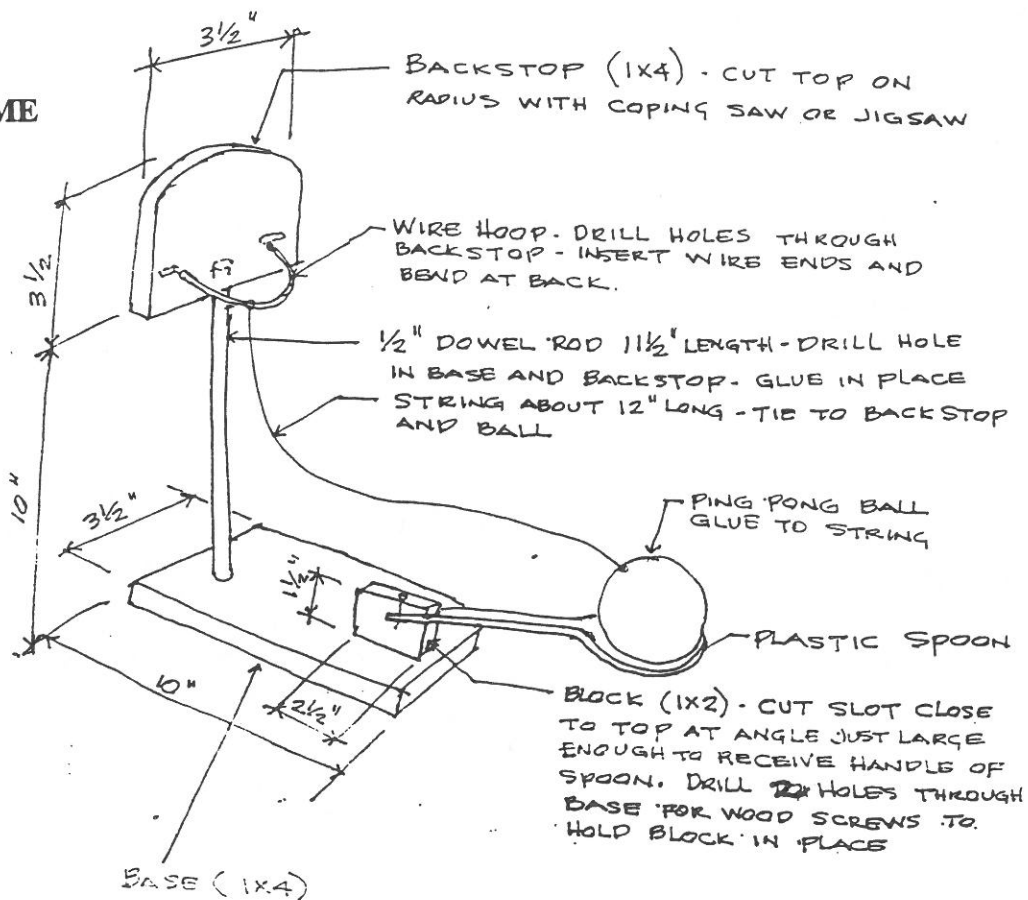 3½"
ME
BACKSTOP (1X4) - CUT TOP ON
RADIUS WITH COPING SAW OR JIGSAW
WIRE HOOP. DRILL HOLES THROUGH
BACKSTOP - INSERT WIRE ENDS AND
BEND AT BACK.
3½
½" DOWEL ROD 11½" LENGTH - DRILL HOLE
IN BASE AND BACKSTOP - GLUE IN PLACE
STRING ABOUT 12" LONG - TIE TO BACKSTOP
AND BALL
10"
3½"
PING PONG BALL
GLUE TO STRING
1½"
PLASTIC SPOON
10"
2½"
BLOCK (1X2) - CUT SLOT CLOSE
TO TOP AT ANGLE JUST LARGE
ENOUGH TO RECEIVE HANDLE OF
SPOON. DRILL HOLES THROUGH
BASE FOR WOOD SCREWS TO
HOLD BLOCK IN PLACE
BASE (1X4)